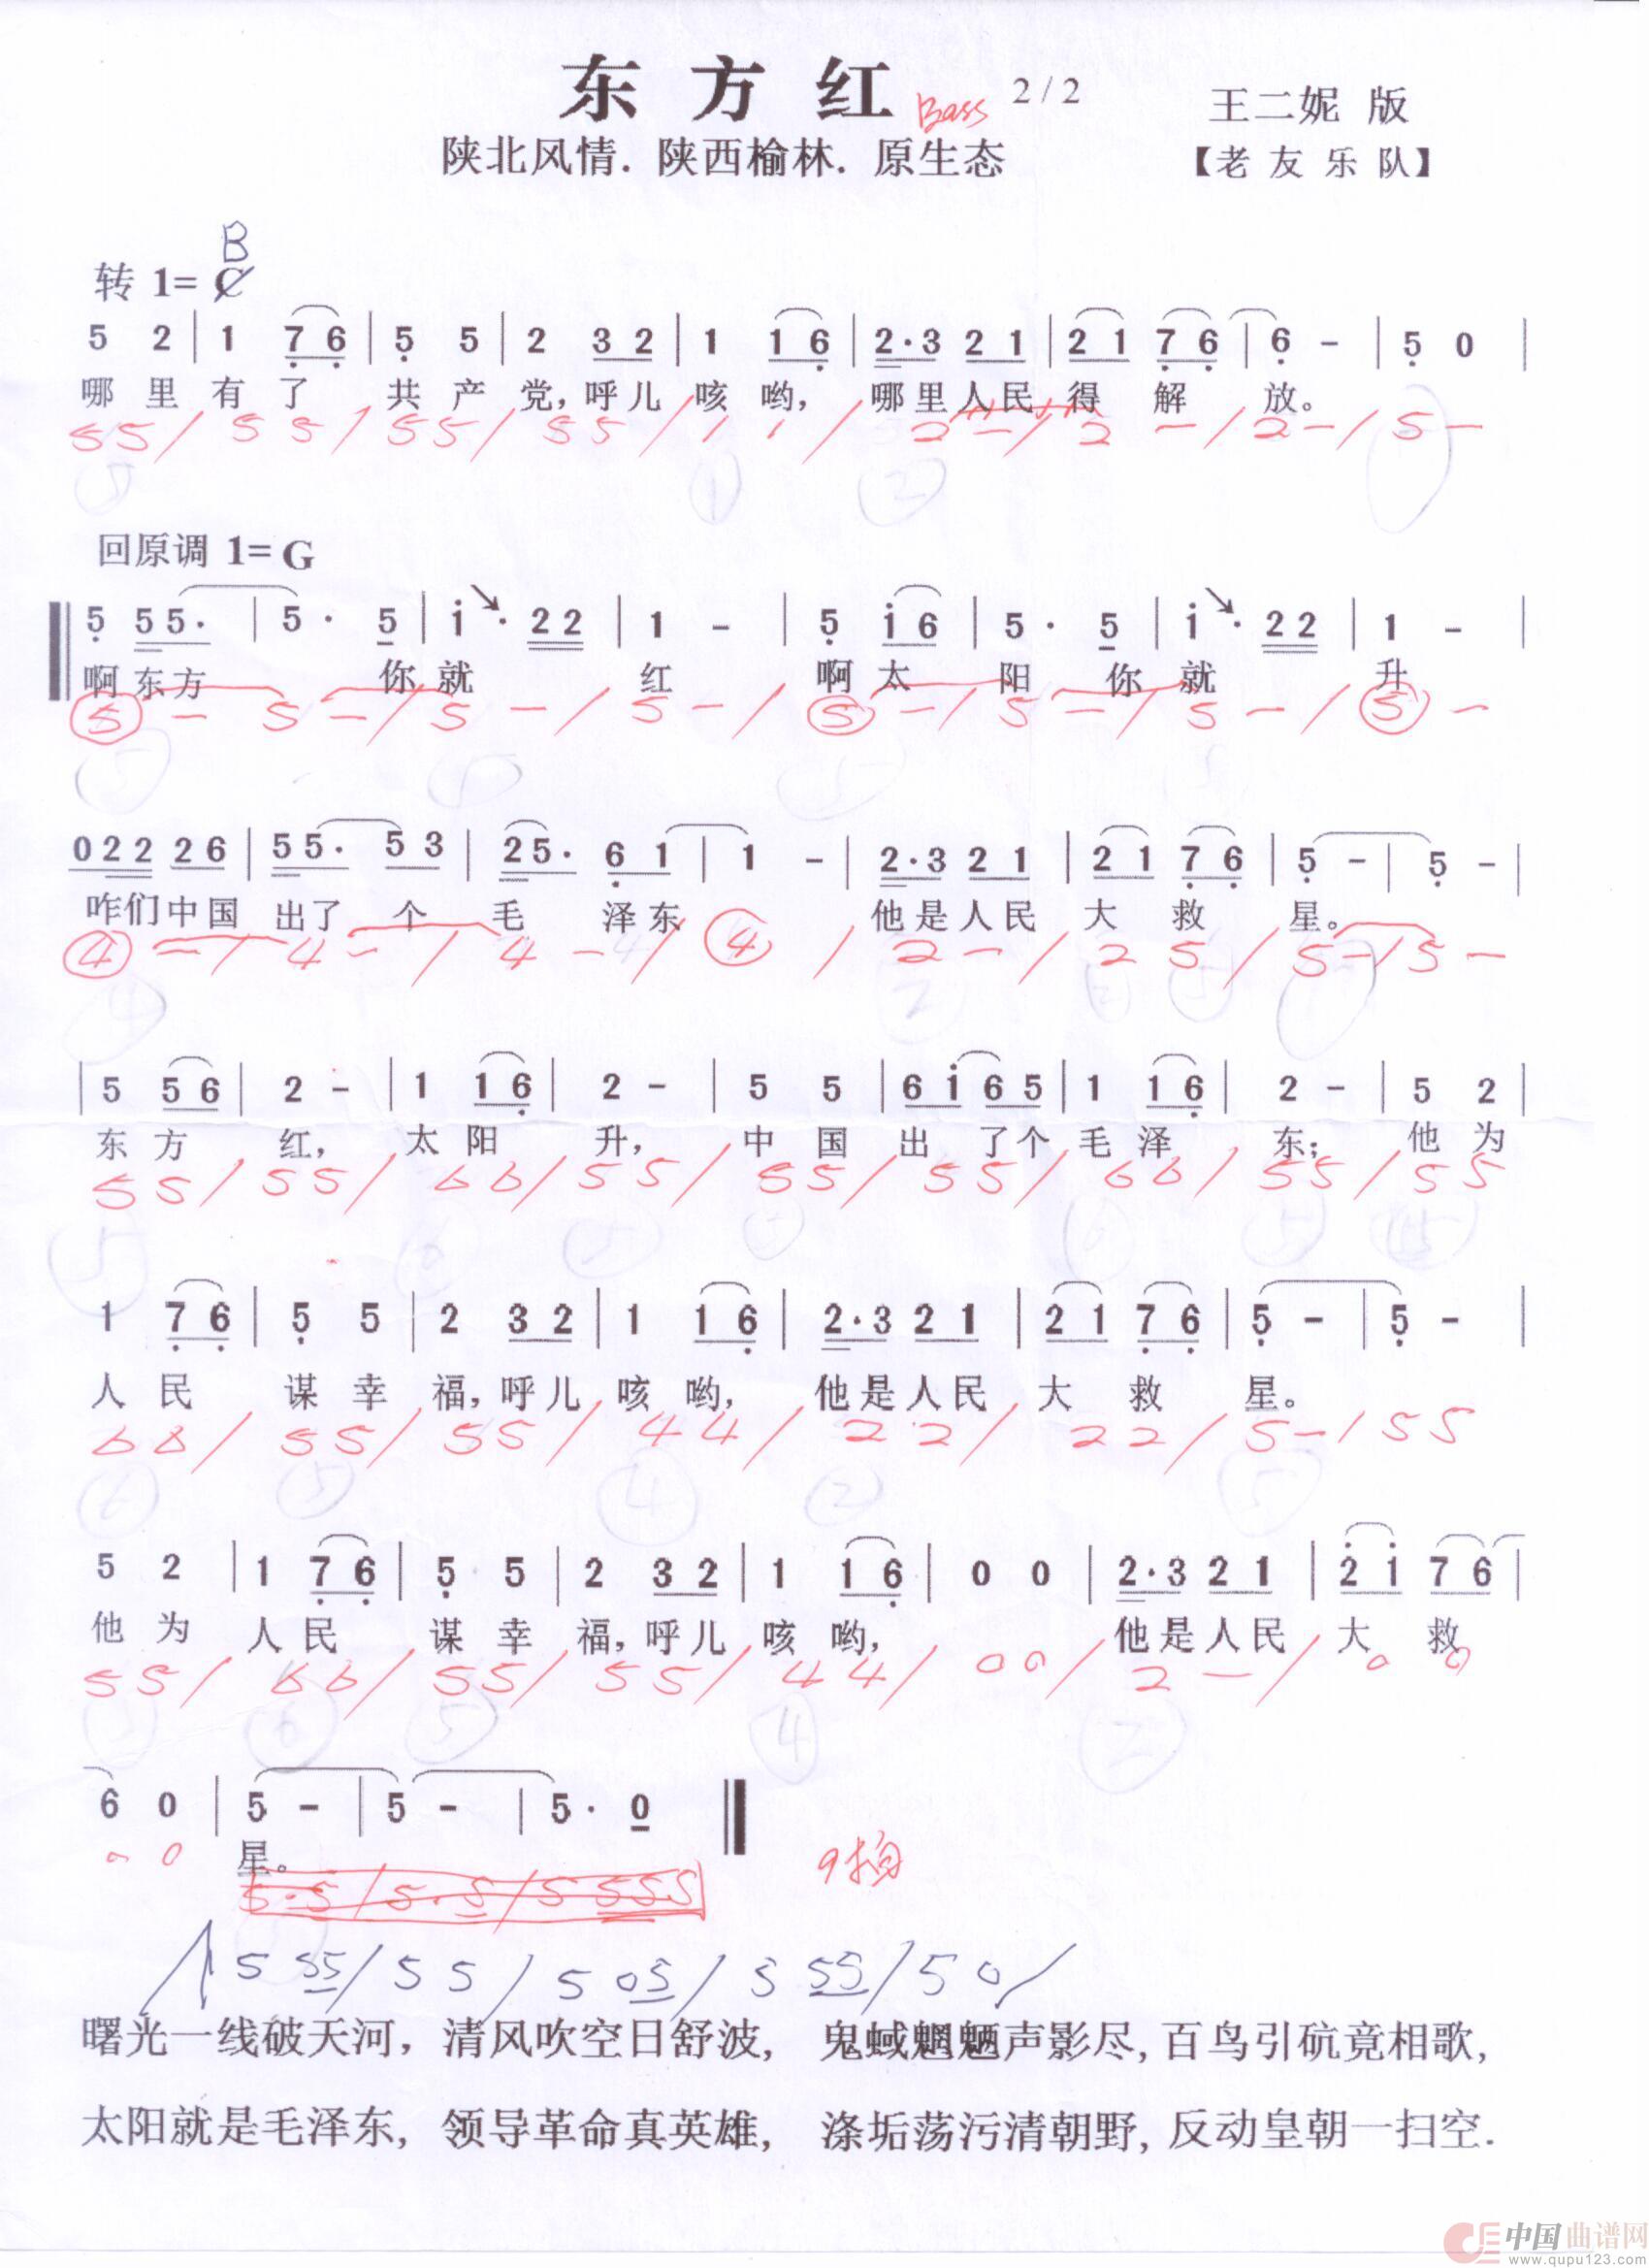 东方红 Bass 2/2 王二妮 版
陕北风情. 陕西榆林. 原生态 【老友乐队】
B
转 1= C
5 2 | 1 7 6 | 5 5 | 2 3 2 | 1 1 6 | 2·3 2 1 | 2 1 7 6 | 6 - | 5 0 |
哪里有了 共产党,呼儿咳哟, 哪里人民得解放。
5 5 / 5 5 / 5 5 / 5 5 / 1 1 / 2 - / 2 - / 2 - / 5 -
5 1 2
回原调 1= G
5 5 5· | 5· 5 | i · 2 2 | 1 - | 5 i 6 | 5· 5 | i · 2 2 | 1 - |
啊东方 你就 红 啊太 阳 你就 升
5 - 5 - / 5 - / 5 - / 5 - / 5 - / 5 - / 5 -
0 2 2 2 6 | 5 5· 5 3 | 2 5· 6 1 | 1 - | 2·3 2 1 | 2 1 7 6 | 5 - | 5 - |
咱们中国 出了 个 毛 泽东 他是人民 大 救 星。
4 - / 4 - / 4 - / 4 / 2 - / 2 5 / 5 - / 5 -
| 5 5 6 | 2 - | 1 1 6 | 2 - | 5 5 | 6 i 6 5 | 1 1 6 | 2 - | 5 2 |
东方 红, 太阳 升, 中国出 了个毛泽 东; 他为
5 5 / 5 5 / 6 6 / 5 5 / 5 5 / 5 5 / 6 6 / 5 5 / 5 5
1 7 6 | 5 5 | 2 3 2 | 1 1 6 | 2·3 2 1 | 2 1 7 6 | 5 - | 5 - |
人民 谋幸福,呼儿咳哟, 他是人民 大 救 星。
6 6 / 5 5 / 5 5 / 4 4 / 2 2 / 2 2 / 5 - / 5 5
6 5 4 2 5
5 2 | 1 7 6 | 5 5 | 2 3 2 | 1 1 6 | 0 0 | 2·3 2 1 | 2 i 7 6 |
他为 人民 谋幸福,呼儿咳哟, 他是人民 大 救
5 5 / 6 6 / 5 5 / 5 5 / 4 4 / 0 0 / 2 - / 0 0
5 6 5 4 2
6 0 | 5 - | 5 - | 5· 0
星。
0 0 5·5 / 5·5 / 5 5 5 5 9拍
5 5 5 / 5 5 / 5 0 5 / 5 5 5 / 5 0 /
曙光一线破天河, 清风吹空日舒波, 鬼蜮魍魉声影尽,百鸟引吭竞相歌,
太阳就是毛泽东, 领导革命真英雄, 涤垢荡污清朝野,反动皇朝一扫空.
中国曲谱网
www.qupu123.com